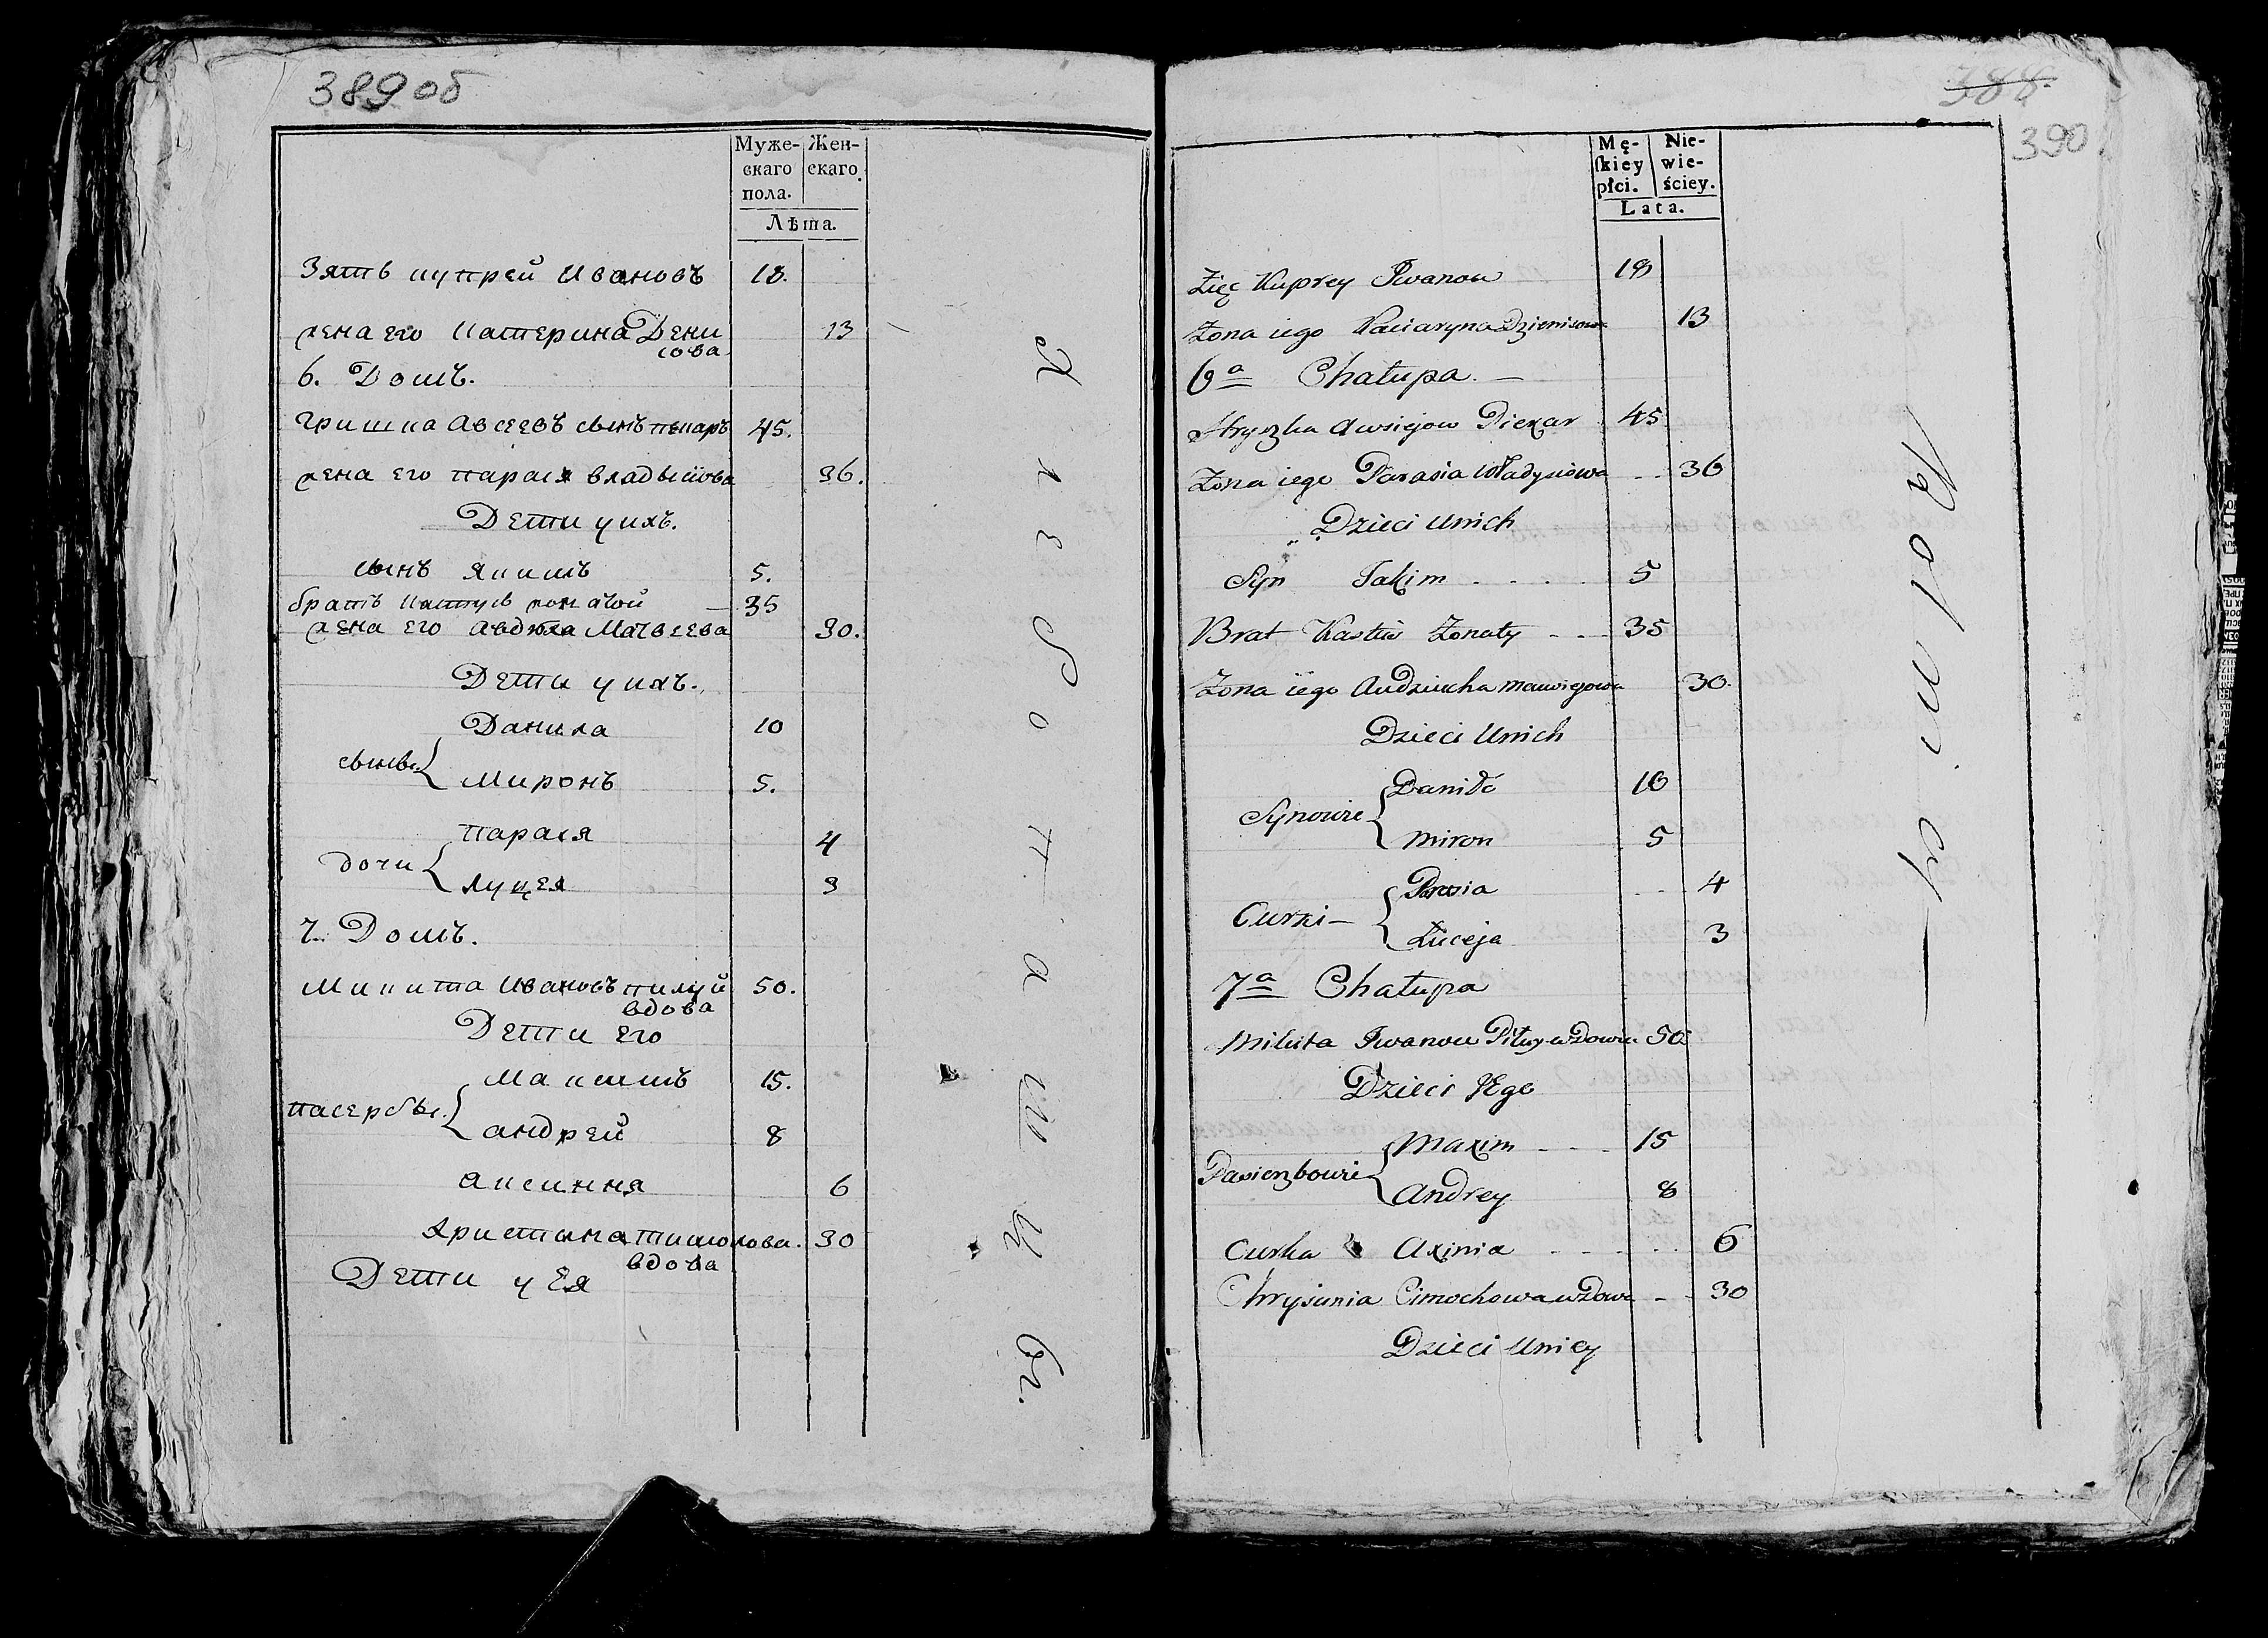 389 об
Муже-
скаго
пола.
Жен-
скаго.
Лѣта.
Зять купрей Ивановъ 18.
жена его катерина Дени
сова 13
6. Домъ.
Гришка Авсеевъ сынъ пекаръ 45.
жена его парася владысiова 36.
Дети у ихъ.
сынъ якимъ 5.
братъ кастусь жонатой — 35
жена его авдюха Матвеева 30.
Дети у ихъ.
Данила 10
сынъы
Миронъ 5.
парася 4
дочи
луцея 3
7. Домъ.
Микита Ивановъ пилуй 50.
вдова
Дети его
Максимъ 15.
пасербы.
андрей 8
аксиння 6
христина тимохова. 30
вдова
Дети у Ея
Хлебопашцы.
388
390
Mę-
skiey
płci.
Nie-
wie-
ściey.
Lata.
Zięć Kuprey Iwanow 18
Zona iego Kaciaryna Dzienisowa 13
6a Chałupa. —
Hryszka Awsiejow Piekar 45
Zona iego Parasia Władysiowa 36
Dzieci Unich
Syn Jakim 5
Brat Kastuś Zonaty 35
Zona iego Audziucha Mawiejowa 30
Dzieci Unich
Daniło 10
Synowie
Miron 5
Parasia 4
Curki —
Łuceja 3
7a Chałupa
Mikita Iwanow Piłuy wdowiec 50
Dzieci JEgo
Maxim 15
Pasierzbowie
Andrey 8
Curka Axinia 6
Chrysinia Cimochowa wdowa 30
Dzieci Unicy
Rolnicy